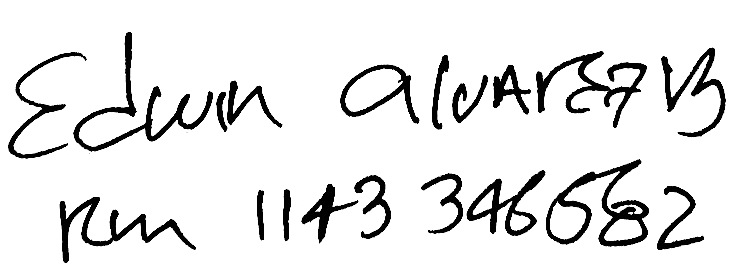 Edwin Alvarez B
RM 1143 346582